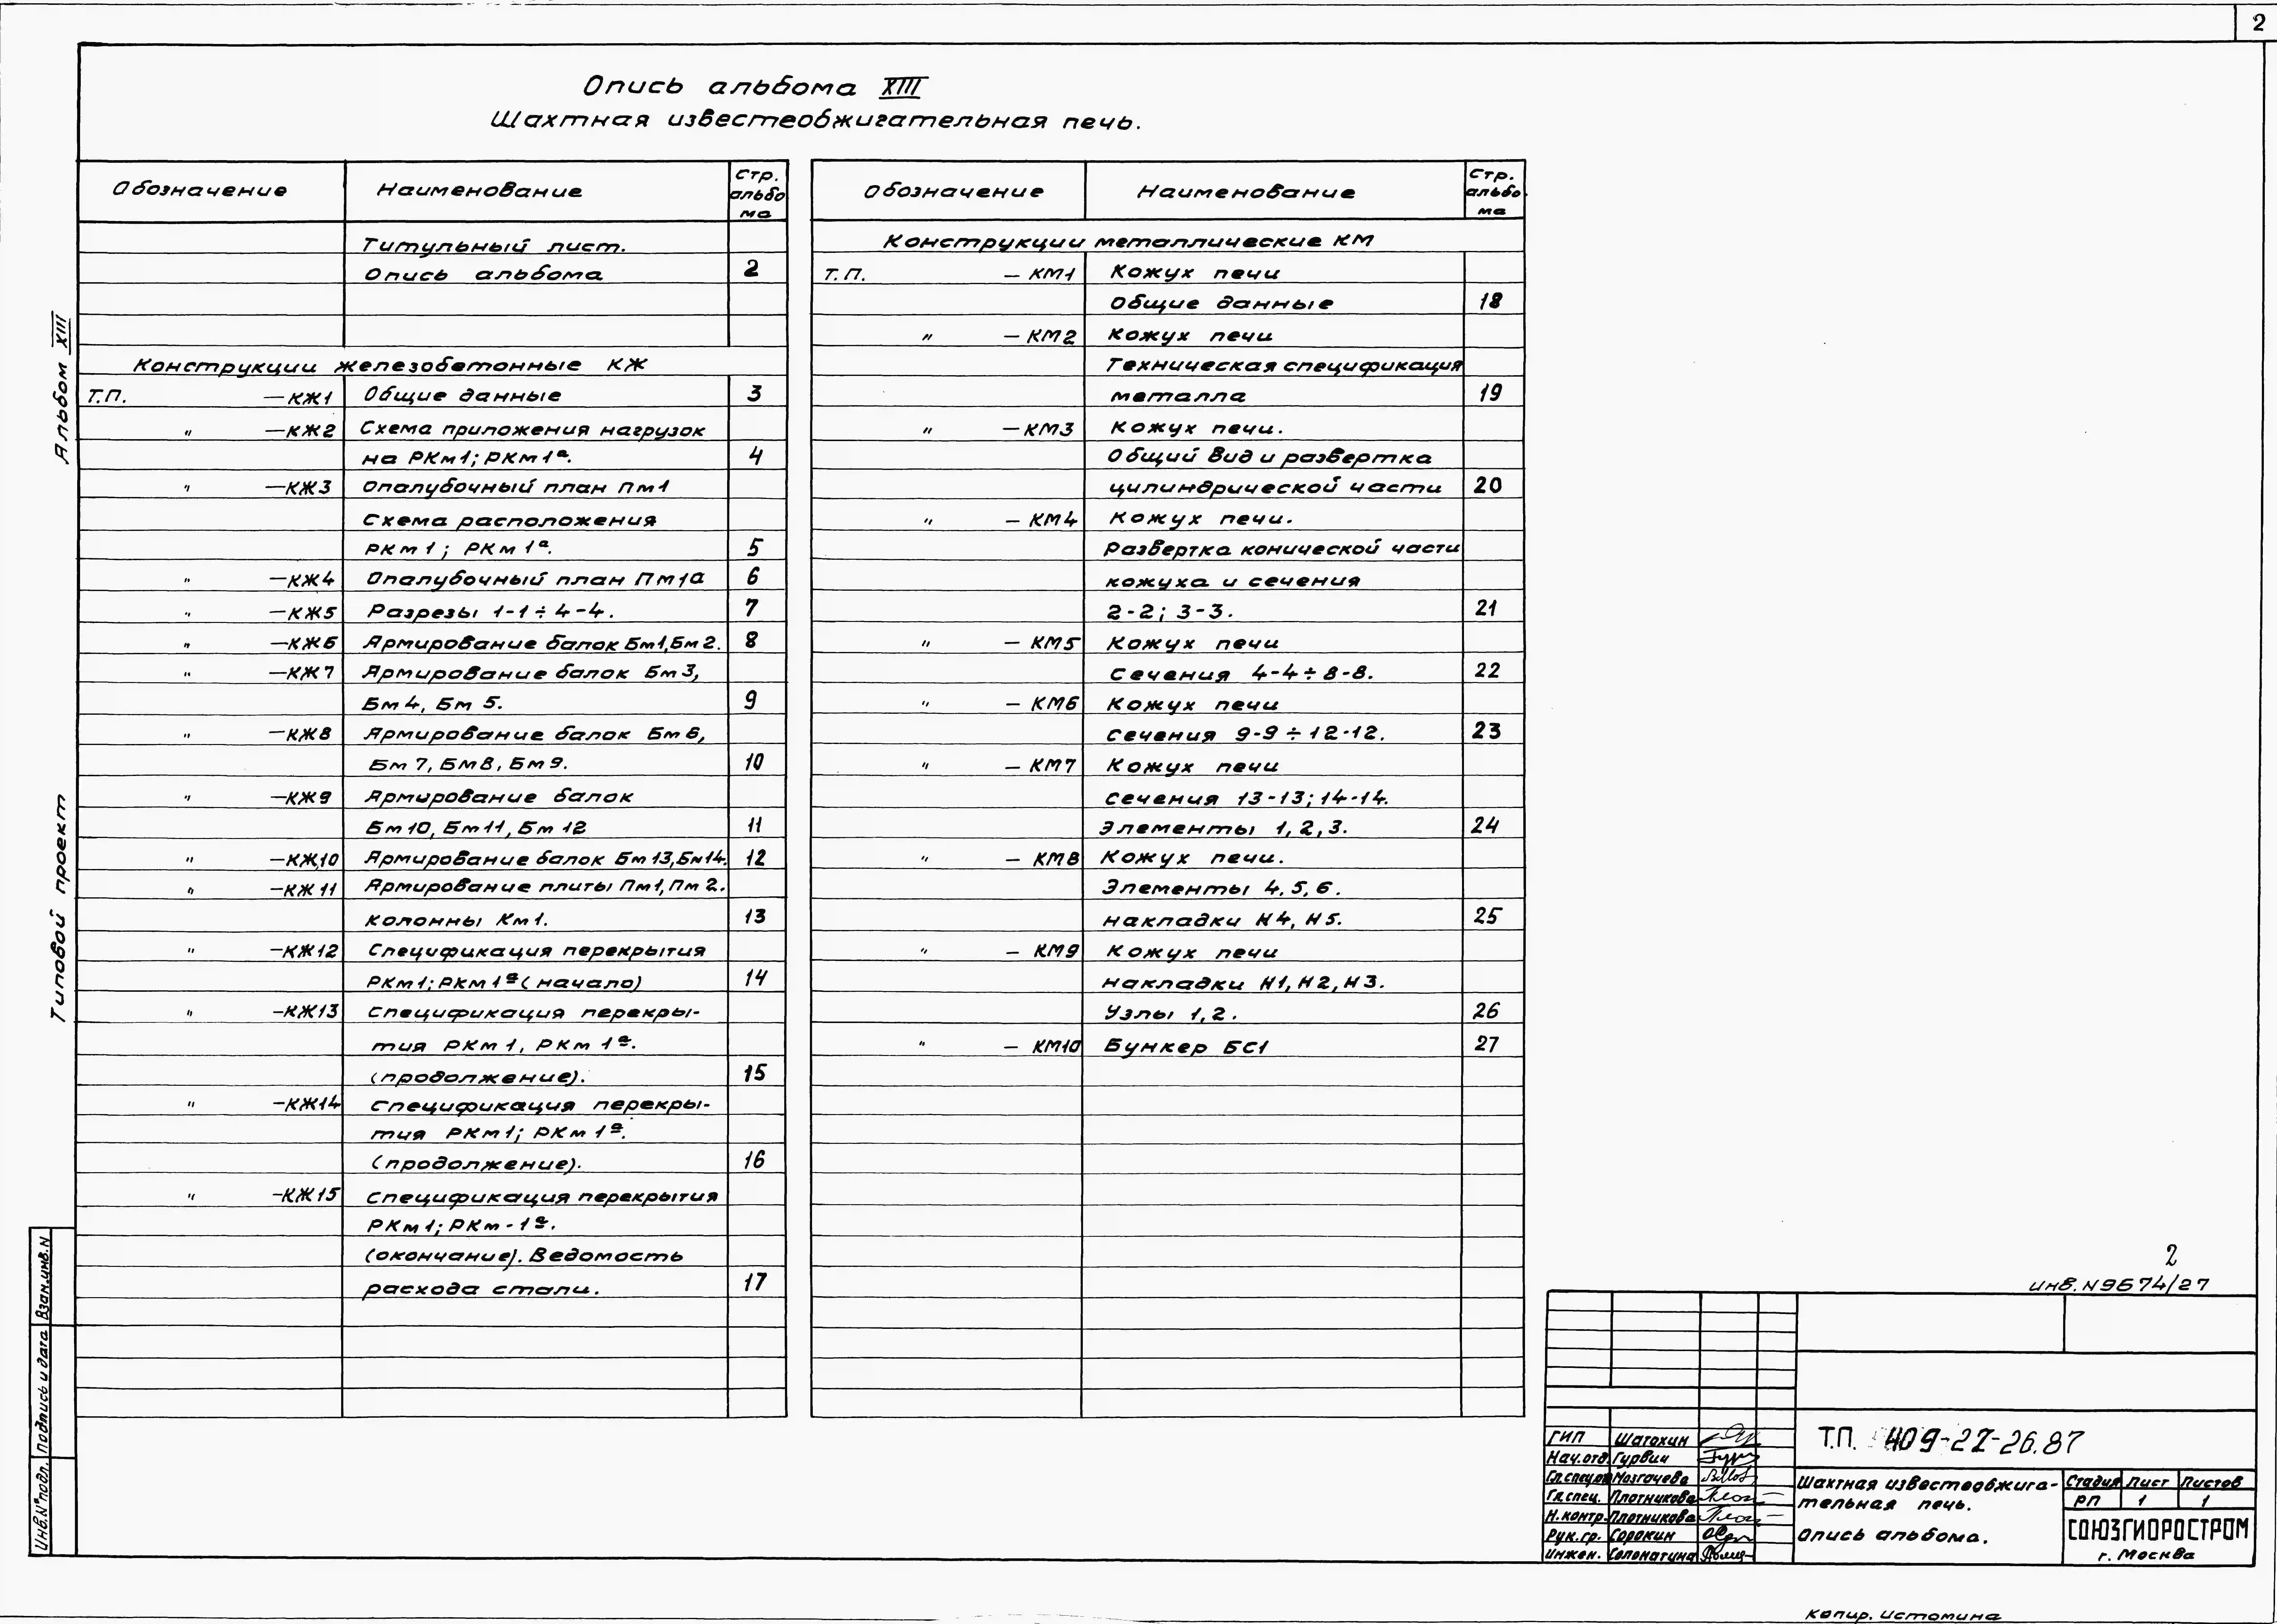 2
Опись альбома XIII
Шахтная известеобжигательная печь.
Обозначение Наименование Стр. альбо ма
Титульный лист.
Опись альбома 2
Конструкции железобетонные КЖ
Т.П. —КЖ1 Общие данные 3
" —КЖ2 Схема приложения нагрузок
на РКм1; РКм1а. 4
" —КЖ3 Опалубочный план Пм1
Схема расположения
РКм1; РКм1а. 5
" —КЖ4 Опалубочный план Пм1а 6
" —КЖ5 Разрезы 1-1÷4-4. 7
" —КЖ6 Армирование балок Бм1, Бм2. 8
" —КЖ7 Армирование балок Бм3,
Бм4, Бм5. 9
" —КЖ8 Армирование балок Бм6,
Бм7, Бм8, Бм9. 10
" —КЖ9 Армирование балок
Бм10, Бм11, Бм12 11
" —КЖ10 Армирование балок Бм13, Бм14. 12
" —КЖ11 Армирование плиты Пм1, Пм2.
колонны Км1. 13
" —КЖ12 Спецификация перекрытия
РКм1; РКм1а (начало) 14
" -КЖ13 Спецификация перекры-
тия РКм1, РКм1а.
(продолжение). 15
" -КЖ14 Спецификация перекры-
тия РКм1; РКм1а.
(продолжение). 16
" -КЖ15 Спецификация перекрытия
РКм1; РКм-1а.
(окончание). Ведомость
расхода стали. 17
Обозначение Наименование Стр. альбо. ма
Конструкции металлические КМ
Т.П. — КМ1 Кожух печи
Общие данные 18
" — КМ2 Кожух печи
Техническая спецификация
металла 19
" — КМ3 Кожух печи.
Общий вид и развертка
цилиндрической части 20
" — КМ4 Кожух печи.
Развертка конической части
кожуха и сечения
2-2; 3-3. 21
" — КМ5 Кожух печи
Сечения 4-4÷8-8. 22
" — КМ6 Кожух печи
Сечения 9-9÷12-12. 23
" — КМ7 Кожух печи
Сечения 13-13; 14-14.
Элементы 1, 2, 3. 24
" — КМ8 Кожух печи.
Элементы 4, 5, 6.
накладки Н4, Н5. 25
" — КМ9 Кожух печи
накладки Н1, Н2, Н3.
Узлы 1, 2. 26
" — КМ10 Бункер БС1 27
Альбом XIII
Типовой проект
Взам.инв.N
Подпись и дата
Инв.N°подл.
2
инв.N9674/27
ГИП Шатохин
Нач.отд. Гурвич
Гл.спец. Мозгачева
Гл.спец. Плотникова
Н.контр. Плотникова
Рук.гр. Сорокин
Инжен. Соломатина
Т.П. 409-22-26.87
Шахтная известеобжига-
тельная печь.
Опись альбома.
Стадия Лист Листов
РП 1 1
СОЮЗГИПРОСТРОМ
г. Москва
Копир. Истомина